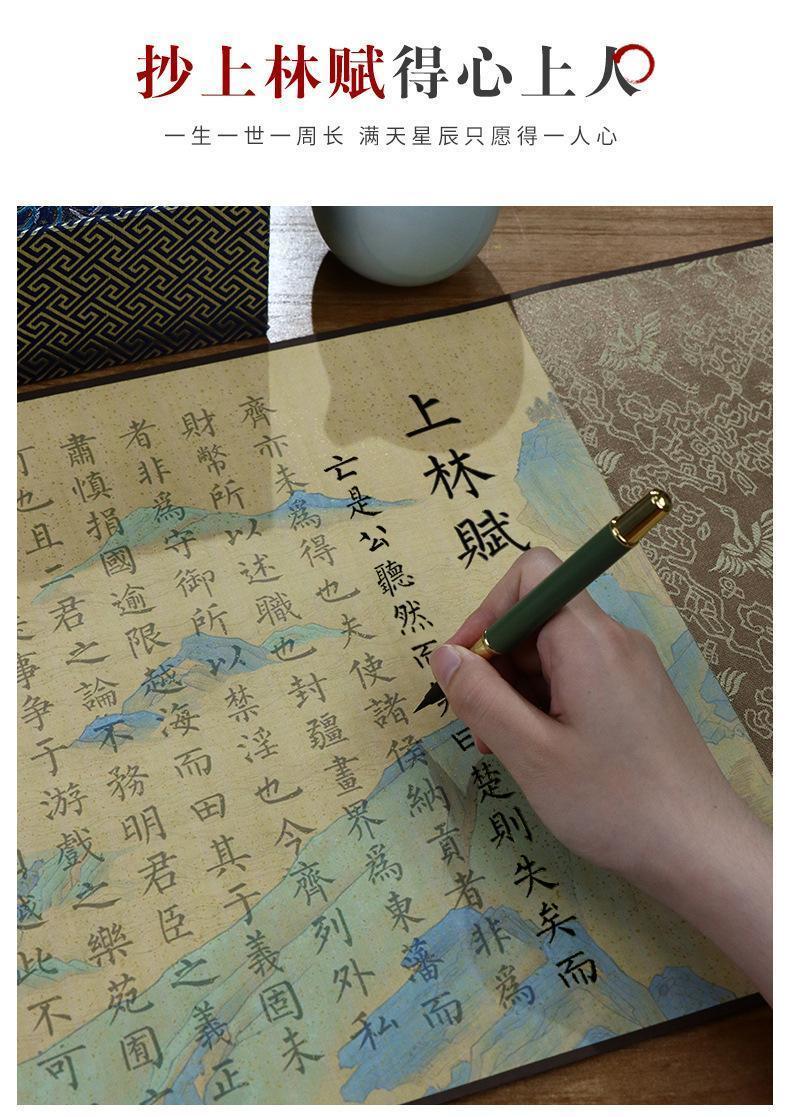 抄上林赋得心上人
一生一世一周长 满天星辰只愿得一人心
上林賦
亡是公聽然而曰楚則失矣而
齊亦未爲得也夫使諸侯納貢者非爲
財幣所以述職也封疆畫界爲東藩而
者非爲守御所以禁淫也今齊列外私
肅慎捐國逾限越海而田其于義固未
也且二君之論不務明君臣之義正
事争于游戲之樂苑囿
此不可